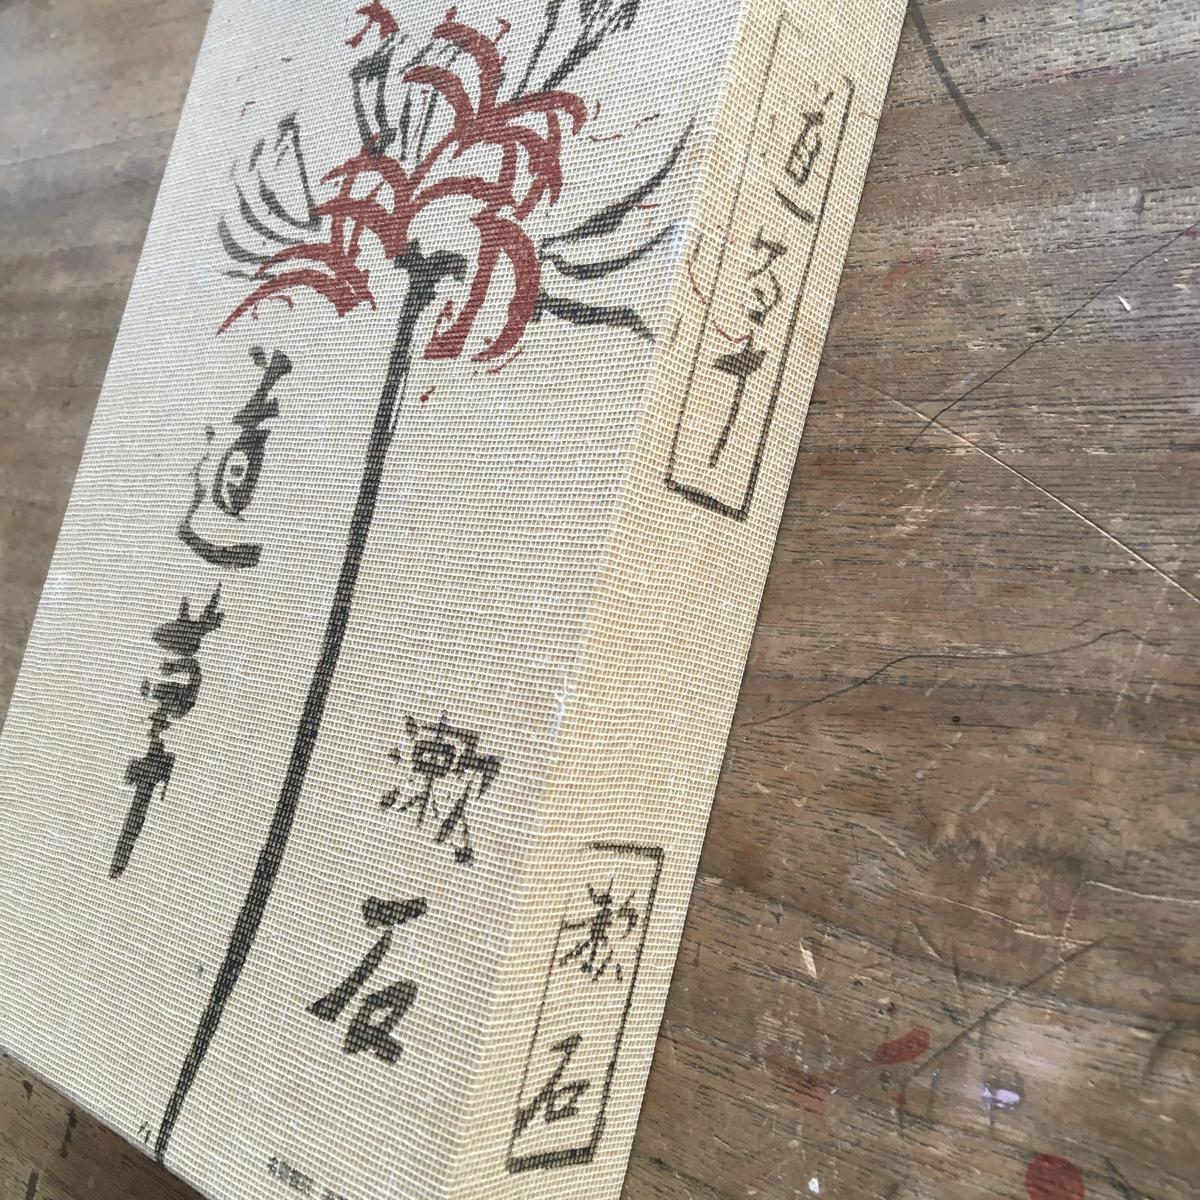 道草
漱石
漱石
道草